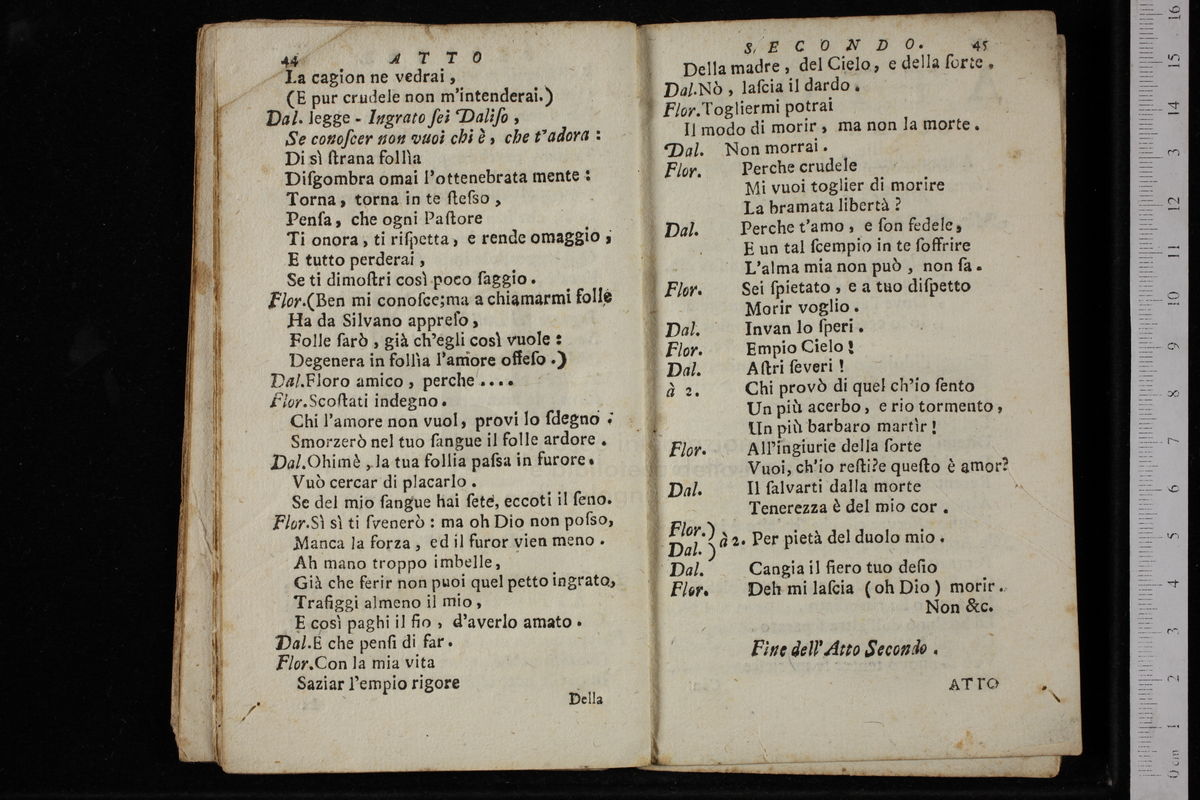 44 ATTO
La cagion ne vedrai,
(E pur crudele non m'intenderai.)
Dal. legge - Ingrato ſei Daliſo,
Se conoſcer non vuoi chi è, che t'adora:
Di sì ſtrana follìa
Diſgombra omai l'ottenebrata mente:
Torna, torna in te ſteſso,
Penſa, che ogni Paſtore
Ti onora, ti riſpetta, e rende omaggio;
E tutto perderai,
Se ti dimoſtri così poco ſaggio.
Flor.(Ben mi conoſce;ma a chiamarmi folle
Ha da Silvano appreſo,
Folle ſarò, già ch'egli così vuole:
Degenera in follìa l'amore offeſo.)
Dal.Floro amico, perche ....
Flor.Scoſtati indegno.
Chi l'amore non vuol, provi lo ſdegno:
Smorzerò nel tuo ſangue il folle ardore.
Dal.Ohimè, la tua follia paſsa in furore.
Vuò cercar di placarlo.
Se del mio ſangue hai ſete, eccoti il ſeno.
Flor.Sì sì ti ſvenerò: ma oh Dio non poſso,
Manca la forza, ed il furor vien meno.
Ah mano troppo imbelle,
Già che ferir non puoi quel petto ingrato,
Trafiggi almeno il mio,
E così paghi il fio, d'averlo amato.
Dal.E che penſi di far.
Flor.Con la mia vita
Saziar l'empio rigore
Della
SECONDO. 45
Della madre, del Cielo, e della ſorte.
Dal.Nò, laſcia il dardo.
Flor.Togliermi potrai
Il modo di morir, ma non la morte.
Dal. Non morrai.
Flor. Perche crudele
Mi vuoi toglier di morire
La bramata libertà?
Dal. Perche t'amo, e ſon fedele,
E un tal ſcempio in te ſoffrire
L'alma mia non può, non ſa.
Flor. Sei ſpietato, e a tuo diſpetto
Morir voglio.
Dal. Invan lo ſperi.
Flor. Empio Cielo!
Dal. Aſtri ſeveri!
à 2. Chi provò di quel ch'io ſento
Un più acerbo, e rio tormento,
Un più barbaro martìr!
Flor. All'ingiurie della ſorte
Vuoi, ch'io reſti?e queſto è amor?
Dal. Il ſalvarti dalla morte
Tenerezza è del mio cor.
Flor.)
Dal. ) à 2. Per pietà del duolo mio.
Dal. Cangia il fiero tuo deſio
Flor. Deh mi laſcia (oh Dio) morir.
Non &c.
Fine dell'Atto Secondo.
ATTO
0 cm 1 2 3 4 5 6 7 8 9 10 11 12 13 14 15 16